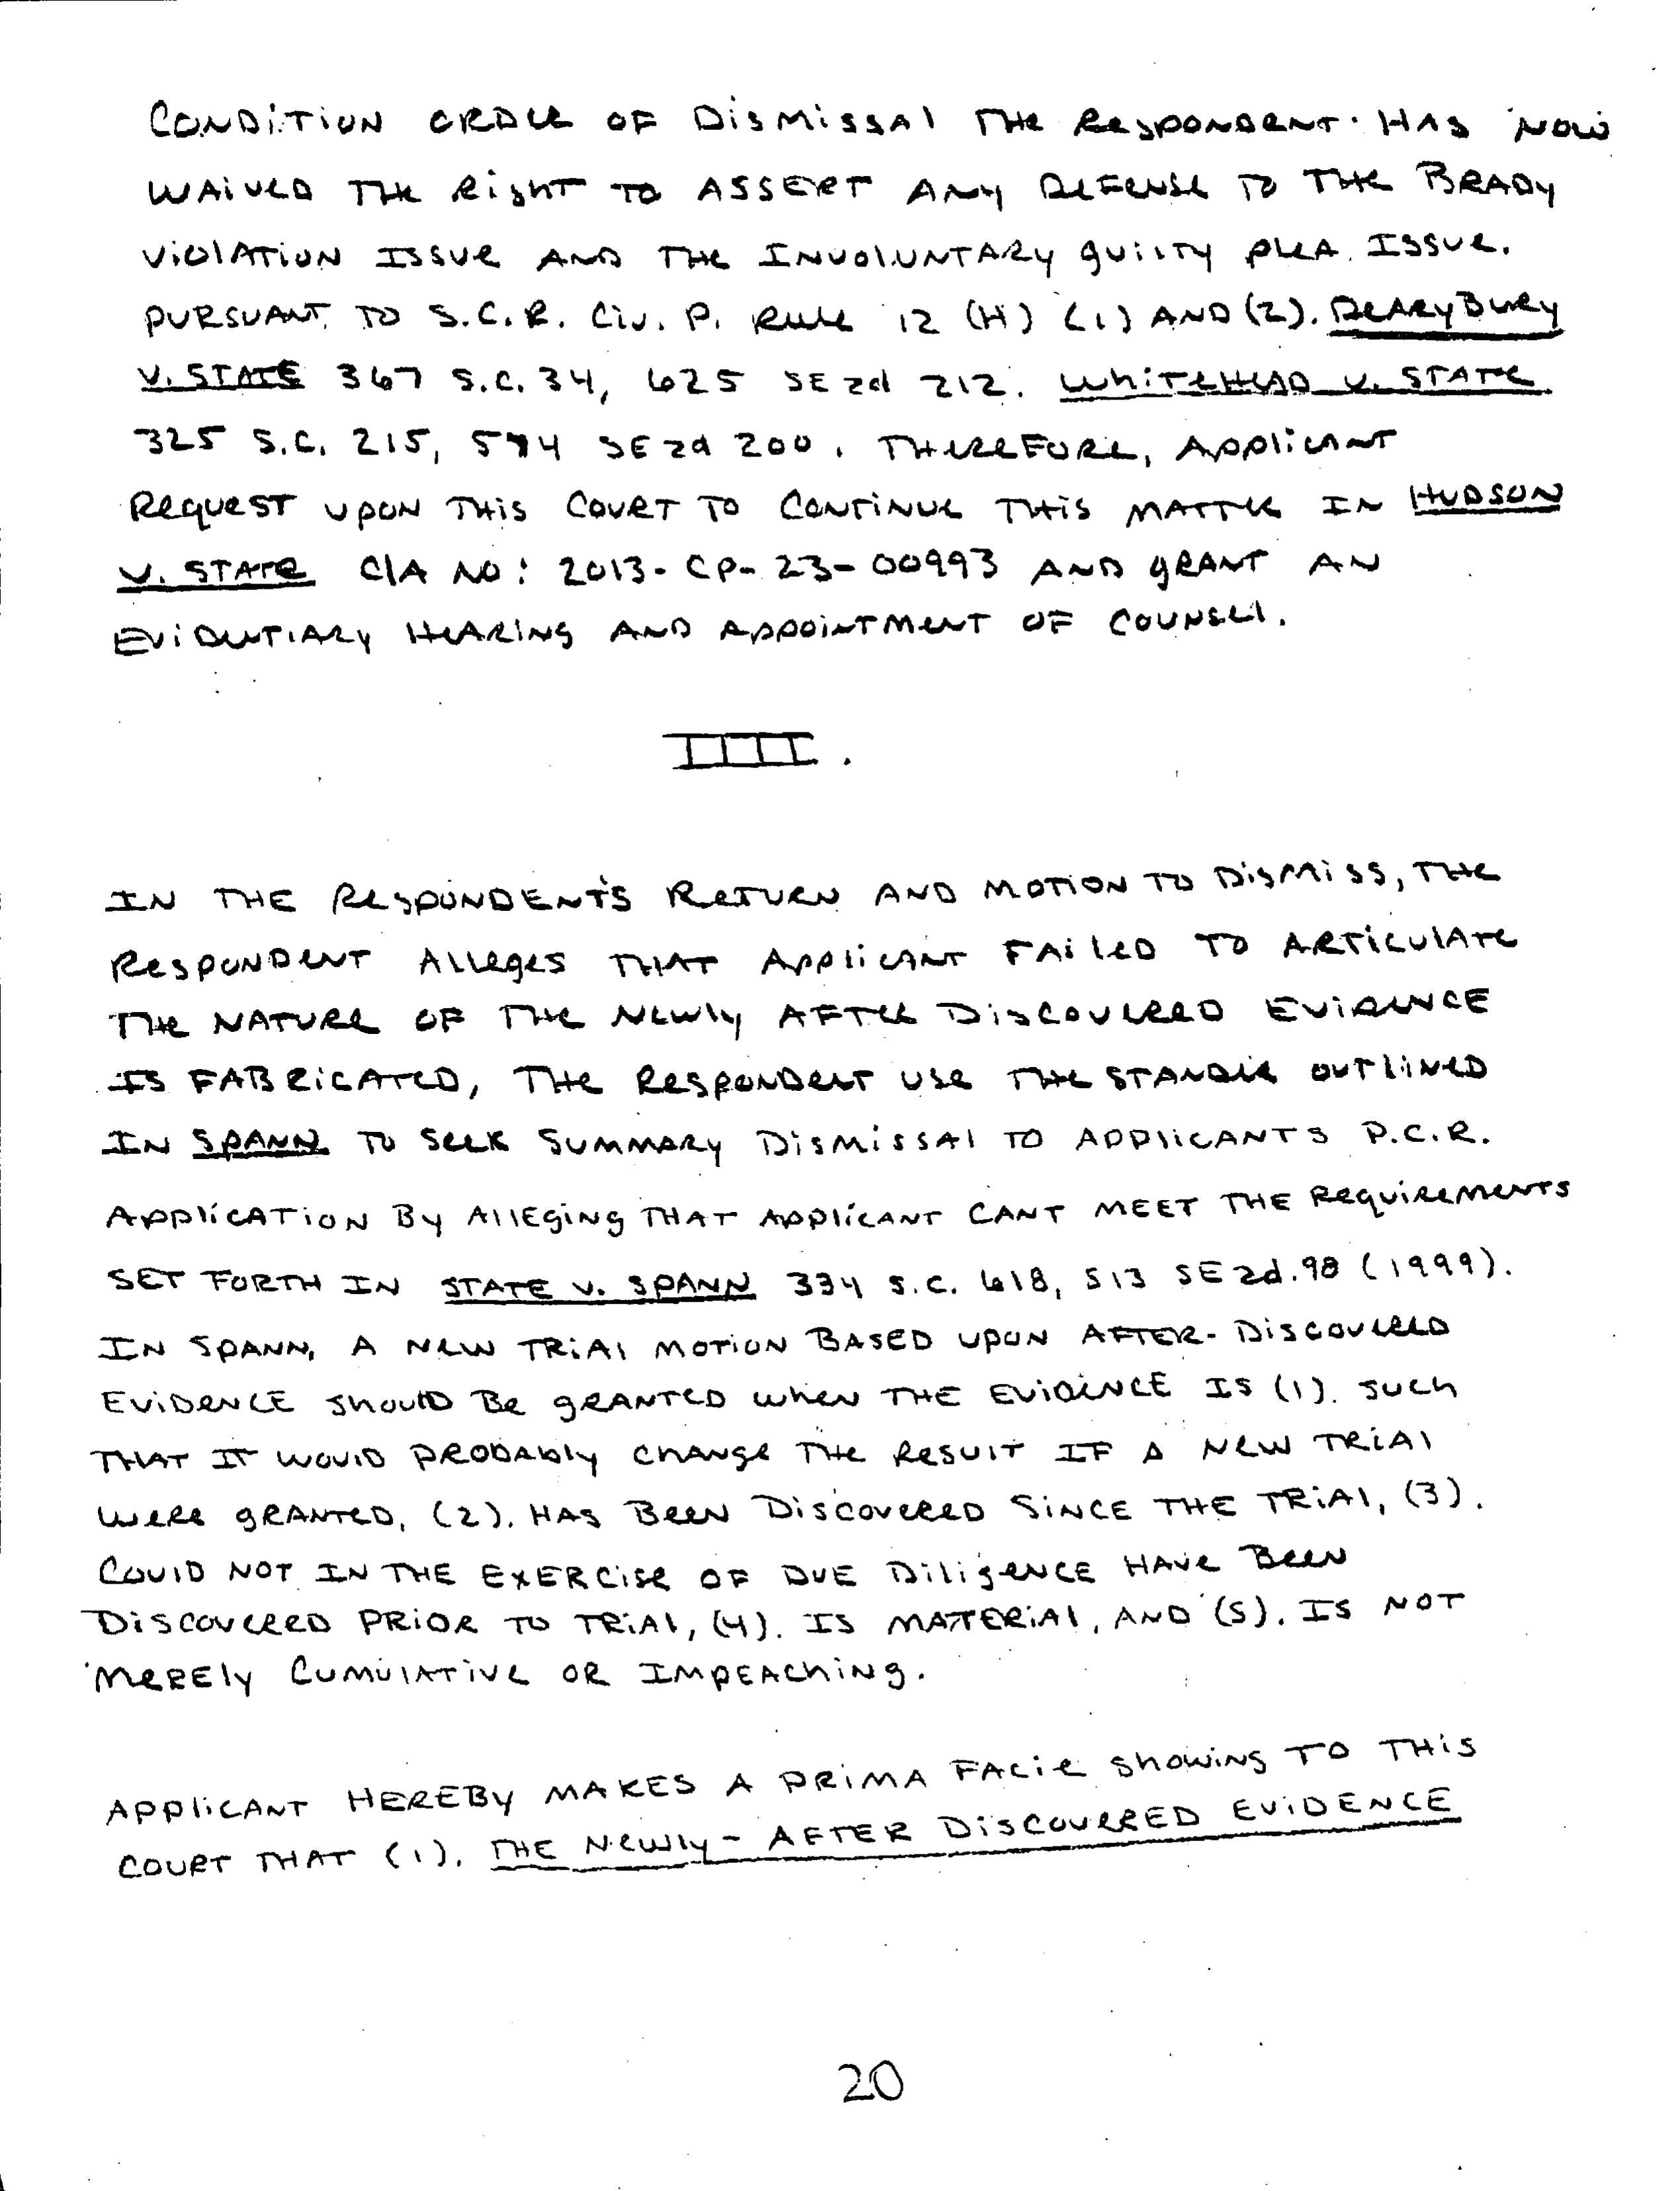 CONDITION ORDER OF DISMISSAL THE RESPONDENT HAS NOW
WAIVED THE RIGHT TO ASSERT ANY DEFENSE TO THE BRADY
VIOLATION ISSUE AND THE INVOLUNTARY GUILTY PLEA ISSUE.
PURSUANT TO S.C.R. CIV. P. RULE 12 (H) (1) AND (2). DEARYBURY
V. STATE 367 S.C. 34, 625 SE 2d 212. WHITEHEAD V. STATE
325 S.C. 215, 574 SE 2d 200. THEREFORE, APPLICANT
REQUEST UPON THIS COURT TO CONTINUE THIS MATTER IN HUDSON
V. STATE C/A NO: 2013-CP-23-00993 AND GRANT AN
EVIDENTIARY HEARING AND APPOINTMENT OF COUNSEL.
IIII.
IN THE RESPONDENT'S RETURN AND MOTION TO DISMISS, THE
RESPONDENT ALLEGES THAT APPLICANT FAILED TO ARTICULATE
THE NATURE OF THE NEWLY AFTER DISCOVERED EVIDENCE
IS FABRICATED, THE RESPONDENT USE THE STANDER OUTLINED
IN SPANN TO SEEK SUMMARY DISMISSAL TO APPLICANTS P.C.R.
APPLICATION BY ALLEGING THAT APPLICANT CANT MEET THE REQUIREMENTS
SET FORTH IN STATE V. SPANN 334 S.C. 618, 513 SE 2d. 98 (1999).
IN SPANN, A NEW TRIAL MOTION BASED UPON AFTER-DISCOVERED
EVIDENCE SHOULD BE GRANTED WHEN THE EVIDENCE IS (1). SUCH
THAT IT WOULD PROBABLY CHANGE THE RESULT IF A NEW TRIAL
WERE GRANTED, (2). HAS BEEN DISCOVERED SINCE THE TRIAL, (3).
COULD NOT IN THE EXERCISE OF DUE DILIGENCE HAVE BEEN
DISCOVERED PRIOR TO TRIAL, (4). IS MATERIAL, AND (5). IS NOT
MERELY CUMULATIVE OR IMPEACHING.
APPLICANT HEREBY MAKES A PRIMA FACIE SHOWING TO THIS
COURT THAT (1). THE NEWLY-AFTER DISCOVERED EVIDENCE
20